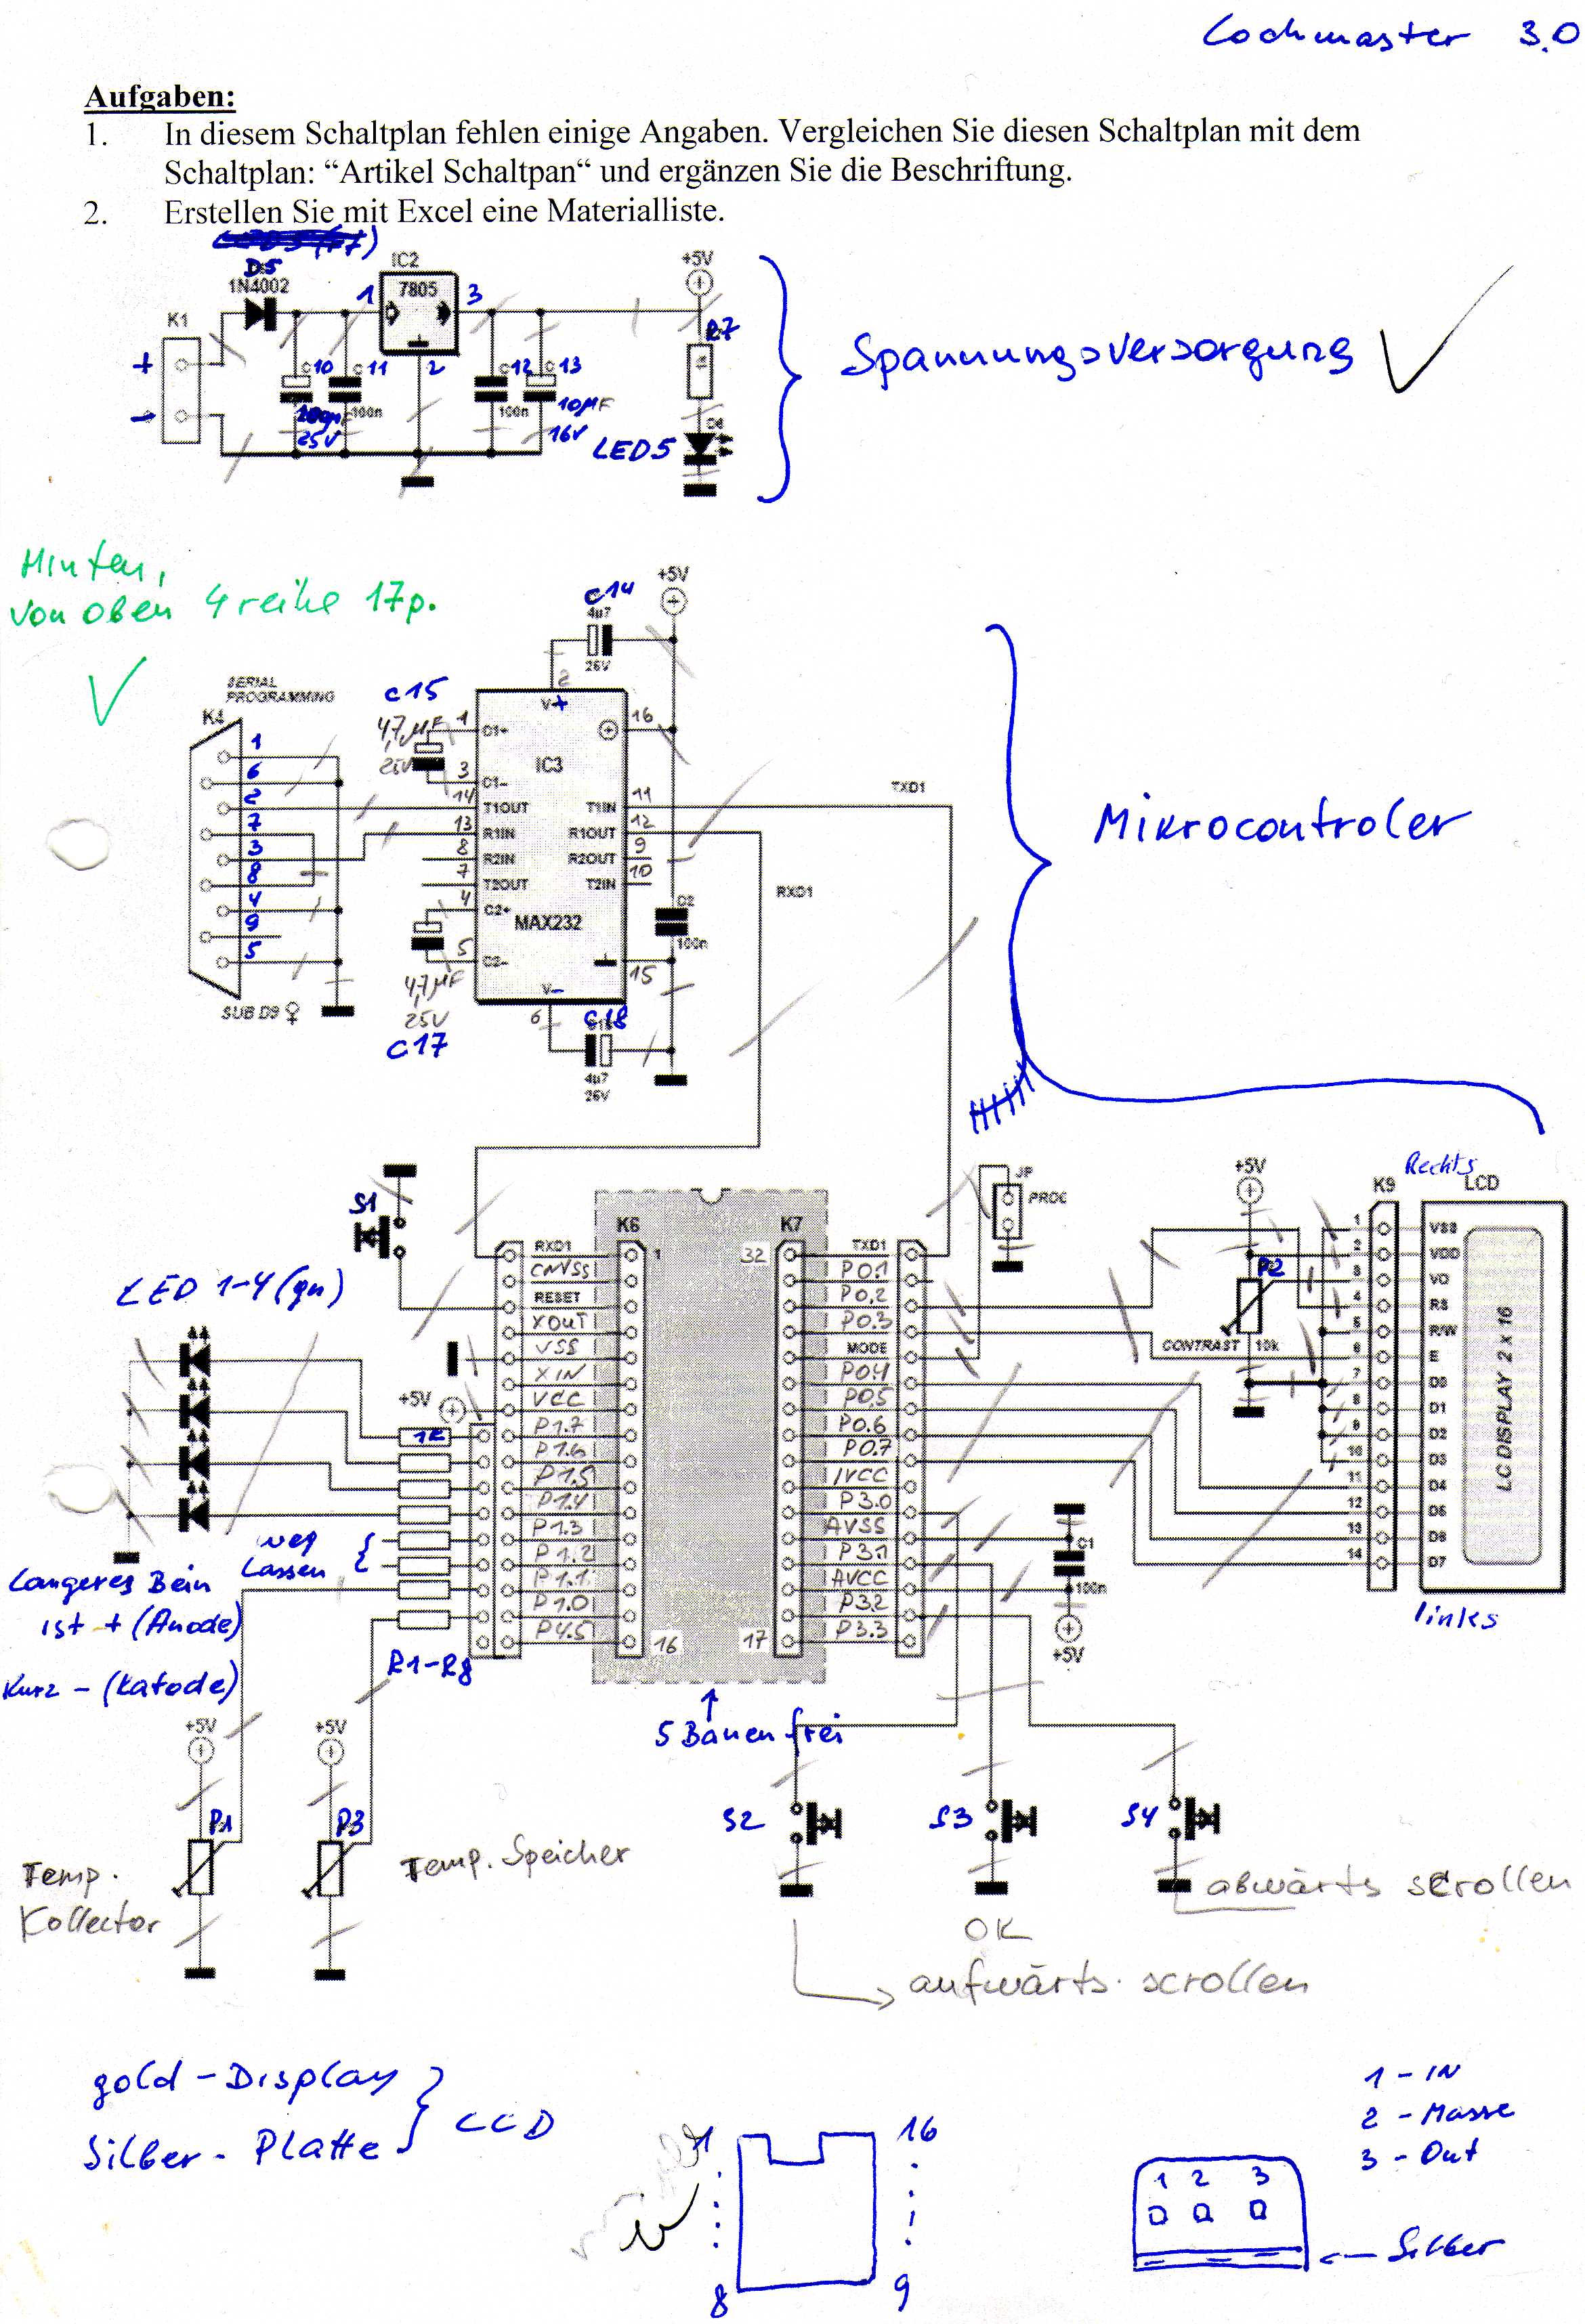 Lochmaster 3.0
Aufgaben:
1. In diesem Schaltplan fehlen einige Angaben. Vergleichen Sie diesen Schaltplan mit dem
Schaltplan: “Artikel Schaltpan“ und ergänzen Sie die Beschriftung.
2. Erstellen Sie mit Excel eine Materialliste.
D5
1N4002
IC2
7805
1
3
2
+5V
K1
+
-
R7
C10
C11
C12
C13
25V
100n
100n
10µF
16V
LED5
Spannungsversorgung
Hinten,
von oben 4 reihe 17p.
+5V
C14
4u7
25V
2
SERIAL
PROGRAMMING
K4
1
6
2
7
3
8
4
9
5
SUB D9 ♀
C15
4,7 µF
25V
V+
1 C1+
16
IC3
3 C1-
14 T1OUT
T1IN 11
13 R1IN
R1OUT 12
8 R2IN
R2OUT 9
7 T2OUT
T2IN 10
4 C2+
MAX232
5 C2-
15
V-
6
4,7 µF
25V
C17
C18
4u7
25V
C2
100n
TXD1
RXD1
Mikrocontroler
S1
K6
K7
1
32
16
17
RXD1
CNVSS
RESET
XOUT
VSS
XIN
VCC
P1.7
P1.6
P1.5
P1.4
P1.3
P1.2
P1.1
P1.0
P4.5
TXD1
P0.1
P0.2
P0.3
MODE
P0.4
P0.5
P0.6
P0.7
IVCC
P3.0
AVSS
P3.1
AVCC
P3.2
P3.3
JP
PROG
+5V
P2
CONTRAST
10k
Rechts
K9
LCD
1 VSS
2 VDD
3 VO
4 RS
5 R/W
6 E
7 D0
8 D1
9 D2
10 D3
11 D4
12 D5
13 D6
14 D7
LC DISPLAY 2 x 16
links
C1
100n
+5V
LED 1-4 (gn)
+5V
1K
weg
Lassen
Langeres Bein
ist + (Anode)
Kurz - (Katode)
R1-R8
5 Bahnen frei
+5V
+5V
P1
P3
Temp.
Kollector
Temp. Speicher
S2
S3
S4
abwärts scrollen
OK
aufwärts scrollen
gold - Display
Silber - Platte
LCD
1
16
8
9
1 - IN
2 - Masse
3 - Out
1 2 3
Silber